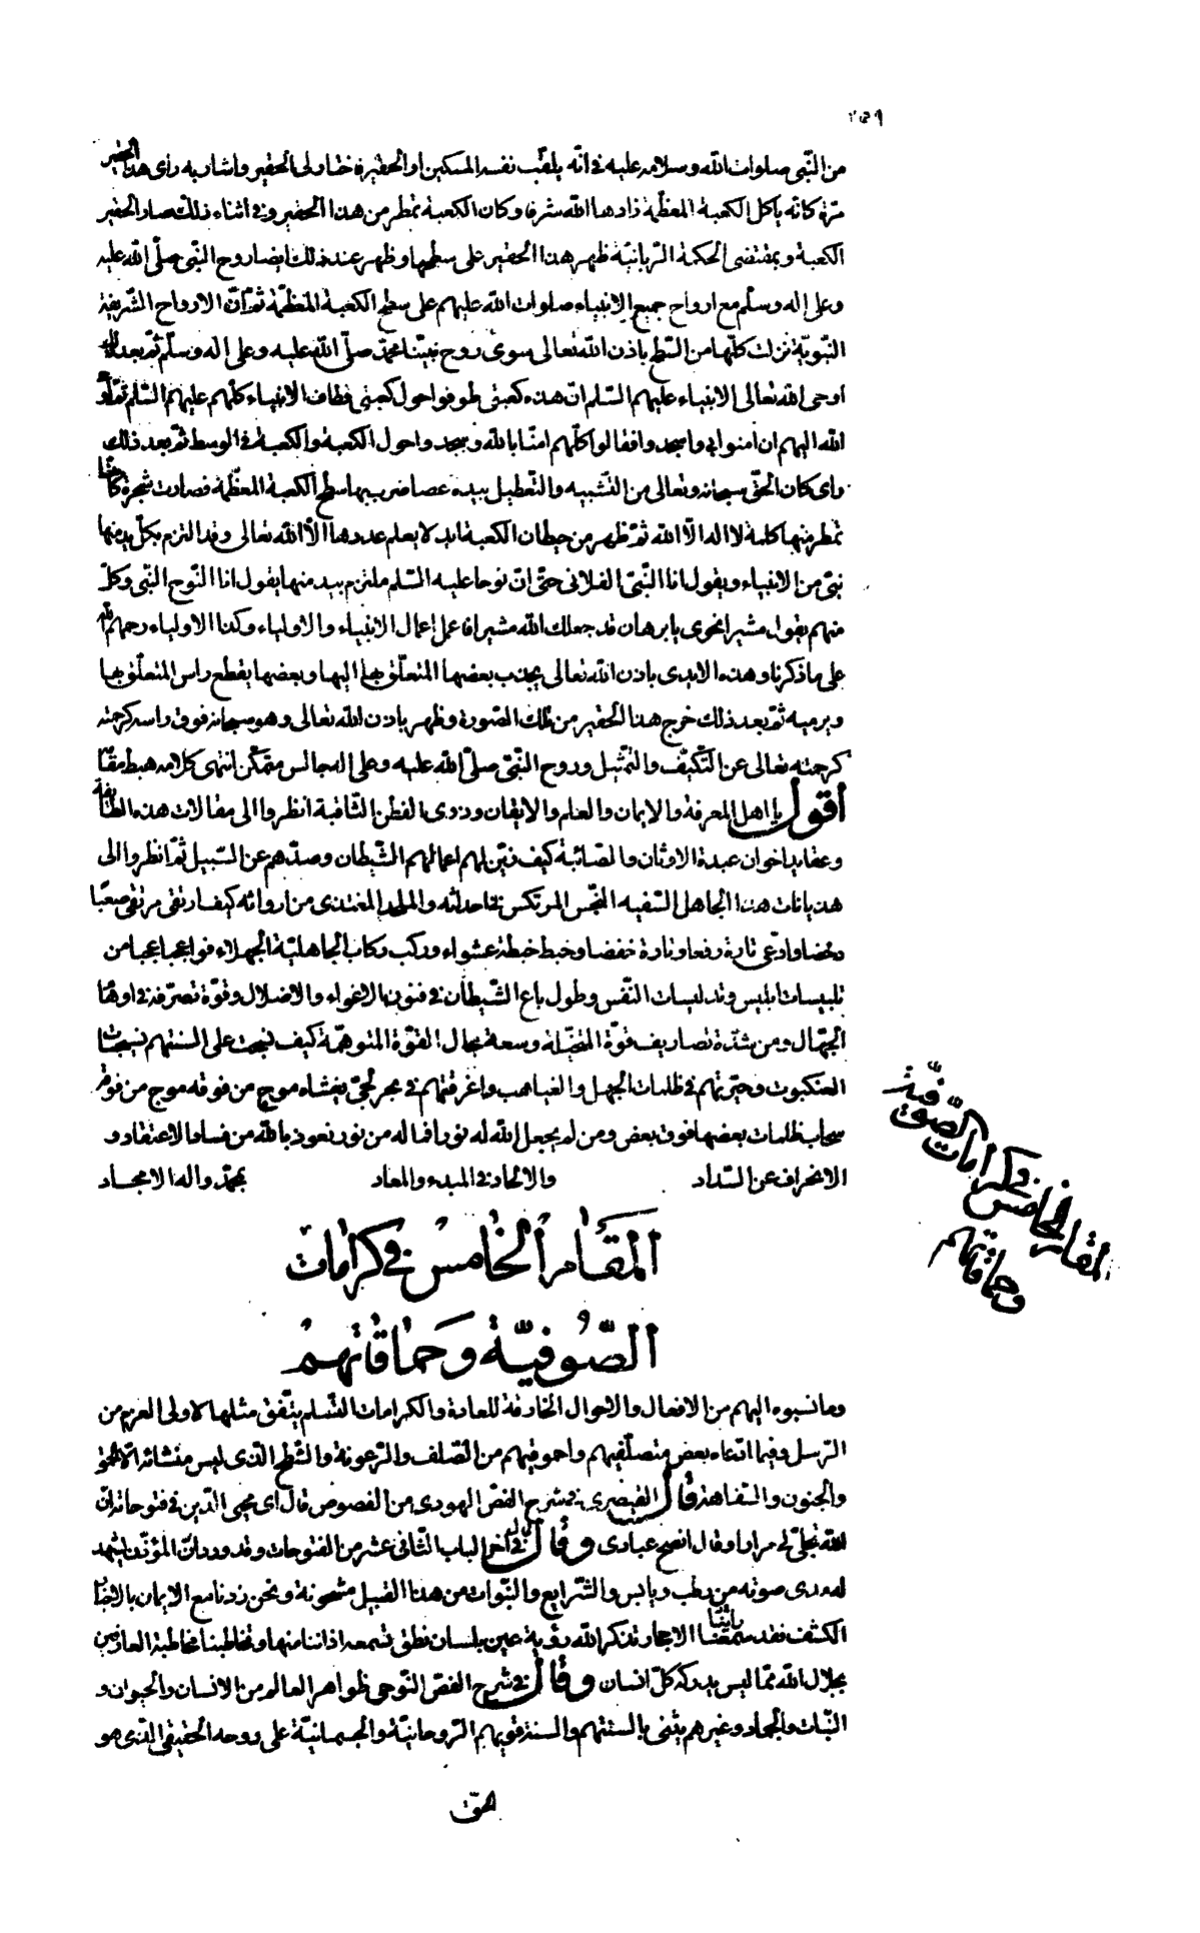 ٢٥٩
من النّبى صلوات الله وسلامه عليه فى انّه يلقّب نفسه المسكين او الحقير فاختار لى الحقير واشار به رأى هذا الحقير
مرّة كانّه يأكل الكعبة المعظّمة زادها الله شرفا وكان الكعبة تمطر من هذا الحقير وفى اثناء ذلك صار الحقير
الكعبة وبمقتضى الحكمة الرّبانيّة ظهر هذا الحقير على سطحها وظهر عند ذلك ايضا روح النّبى صلّى الله عليه
وعلى اله وسلّم مع ارواح جميع الانبياء صلوات الله عليهم على سطح الكعبة المعظّمة ثمّ انّ الارواح الشّريفة
النّبويّة نزلت كلّها من السّطح باذن الله تعالى سوى روح نبيّنا محمّد صلّى الله عليه وعلى اله وسلّم ثمّ بعد ذلك
اوحى الله تعالى الانبياء عليهم السّلم انّ هذه كعبتى طوفوا حول كعبتى فطاف الانبياء كلّهم عليهم السّلم ثمّ
الله اليهم ان امنوا بى واسجدوا فقالوا كلّهم امنّا بالله وسجدوا حول الكعبة والكعبة فى الوسط ثمّ بعد ذلك
راى كان الحقّ سبحانه وتعالى من التّشبيه والتّعطيل بيده عصا ضرب بها سطح الكعبة المعظّمة فصارت شجرة كانّها
تمطر منها كلمة لا اله الّا الله ثمّ ظهر من حيطان الكعبة ايد لا يعلم عددها الّا الله تعالى وقد التزم بكلّ يد منها
نبىّ من الانبياء ويقول انا النّبىّ الفلانى حتّى انّ نوحا عليه السّلم ملتزم بيد منها يقول انا النّوح النّبى وكلّ
منهم يقول مشيرا نحوى يا برهان قد جعلك الله مشيرا فاعمل اعمال الانبياء والاولياء وكذا الاولياء رحمهم الله
على ما ذكرنا وهذه الايدى باذن الله تعالى يجذب بعضها المتعلّق بها اليها وبعضها يقطع راس المتعلّق بها
ويرميه ثمّ بعد ذلك خرج هذا الحقير من تلك الصّورة وظهر باذن الله تعالى وهو سبحانه فوق راسه كرجته
كرجته تعالى عن التّكيّف والتّمثيل وروح النّبىّ صلّى الله عليه وعلى اله جالس متمكّن انتهى كلامه هبط مقامه
أقول يا اهل المعرفة والايمان والعلم والايقان وذوى الفطن الثّاقبة انظروا الى مقالات هذه الطّائفة
وعقايد اخوان عبدة الاوثان والصّائبة كيف زيّن لهم اعمالهم الشّيطان وصدّهم عن السّبيل ثمّ انظروا الى
هذيانات هذا الجاهل السّفيه النّجس المرتكس فى احداثه والملحد المغتذى من ارواثه كيف ارتقى مرتقى صعبا
دحضا وادّعى تارة رفعا وتارة خفضا وخبط خبطة عشواء وركب ركاب الجاهليّة الجهلاء فواعجبا عجبا من
تلبيسات ابليس وتدليسات النّفس وطول باع الشّيطان فى فنون الاغواء والاضلال وقوّة تصرّفه فى اوهام
الجهّال ومن شدّة تصاريف قوّة المتخيّلة وسعة مجال القوّة المتوهّمة كيف نسجت على السنتهم نسيجات
العنكبوت وحيّرتهم فى ظلمات الجهل والغياهب واغرقتهم فى بحر لجىّ يغشاه موج من فوقه موج من فوقه
سحاب ظلمات بعضها فوق بعض ومن لم يجعل الله له نورا فما له من نور نعوذ بالله من فساد الاعتقاد و
الانحراف عن السّداد والالحاد فى المبدء والمعاد بمحمّد واله الامجاد
المقام الخامس فى كرامات
الصّوفيّة وحماقاتهم
المقام الخامس فى كرامات الصّوفيّة
وحماقاتهم
وما نسبوه اليهم من الافعال والاحوال الخارقة للعادة والكرامات الّتى لم يتّفق مثلها لاولى العزم من
الرّسل وفيما ادّعاه بعض متصلّفيهم واحموقيهم من الصّلف والرّعونة والشّطح الّذى ليس منشائه الّا الحمق
والجنون والسّفاهة قال القيصرى فى شرح الفصّ الهودى من الفصوص قال اى محيى الدّين فى فتوحاته انّ
الله تجلّى لى مرارا وقال انصح عبادى وقال فى اخر الباب الثّانى عشر من الفتوحات وقد ورد انّ المؤذّن يشهد
له مدى صوته من رطب ويابس والشّرايع والنّبوات من هذا القبيل مشحونة ونحن زدنا مع الايمان بالاخبار
الكشف فقد سمعنا الاحجار رأينا تذكر الله رؤية عين بلسان نطق تسمعه اذاننا منها وتخاطبنا مخاطبة العارفين
بجلال الله ممّا ليس يدركه كلّ انسان وقال فى شرح الفصّ النّوحى ظواهر العالم من الانسان والحيوان و
النّبات والجماد وغيرهم يثنى بالسنتهم والسنة قويهم الرّوحانيّة والجسمانيّة على روحه الحقيقى الّذى هو
الحقّ